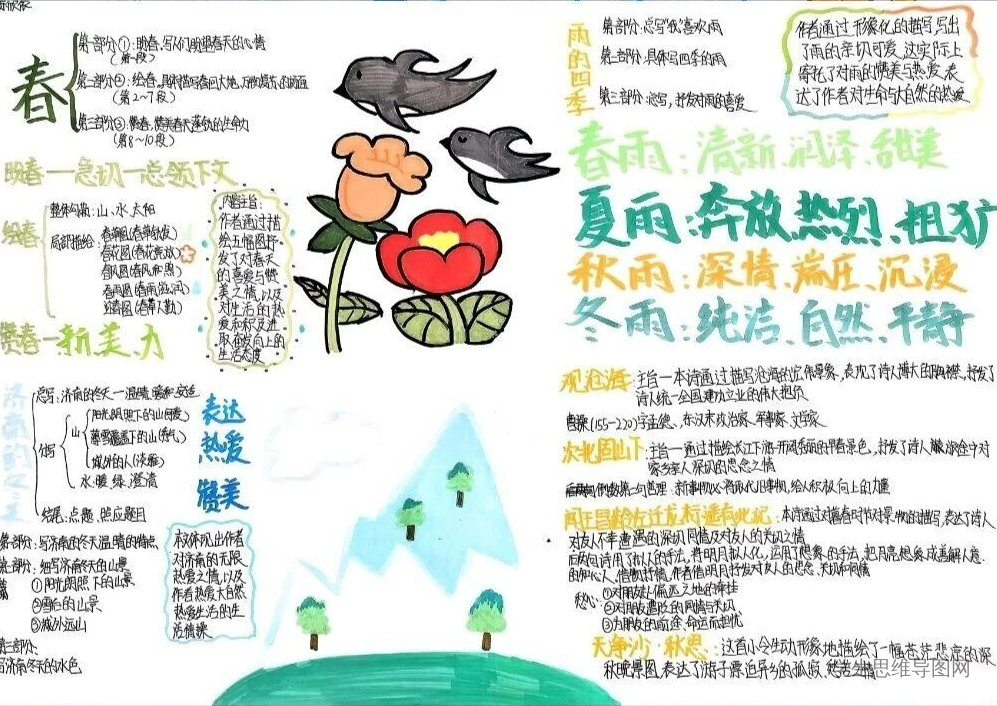 春
第一部分①:盼春,写人们盼望春天的心情
(第一段)
第二部分②:绘春,具体描写春回大地,万物复苏的画面
(第2~7段)
第三部分③:赞春,赞美春天蓬勃的生命力
(第8~10段)
盼春—急切—总领下文
绘春
整体勾勒:山、水、太阳
局部描绘:春草图(春草勃发)
春花图(春花竞放)
春风图(春风和煦)
春雨图(春雨滋润)
迎春图(春早人勤)
赞春—新、美、力
内容主旨:
作者通过描
绘五幅图抒
发了对春天
的喜爱与赞
美之情,以及
对生活的热
爱和积极进
取奋发向上的
生活态度
济南的冬天
总写:济南的冬天—温晴,暖和安适
山
阳光朗照下的山
薄雪覆盖下的山(秀气)
城外的人(淡雅)
水:暖、绿、澄清
结尾:点题、照应题目
表达
热爱
赞美
第一部分:写济南的冬天温晴的特点
第二部分:细写济南冬天的山景
①阳光朗照下的山景
②雪后的山景
③城外远山
第三部分:
写济南冬天的水色
本文体现出作者
对济南的无限
热爱之情,以及
作者热爱大自然
热爱生活的生
活情操
雨的四季
第一部分:总写“我”喜欢雨
第二部分:具体写四季的雨
第三部分:总写,抒发对雨的喜爱
作者通过形象化的描写,写出
了雨的亲切可爱,这实际上
寄托了对雨的赞美与热爱,表
达了作者对生命与大自然的热爱
春雨:清新、润泽、甜美
夏雨:奔放、热烈、粗犷
秋雨:深情、端庄、沉浸
冬雨:纯洁、自然、平静
观沧海:主旨—本诗通过描写沧海的宏伟景象,表现了诗人博大的胸襟,抒发了
诗人统一全国建功立业的伟大抱负
曹操(155-220)字孟德,东汉末政治家、军事家、文学家
次北固山下:主旨—通过描绘长江下游开阔秀丽的早春景色,抒发了诗人
家乡亲人深切的思念之情
哲理:新事物必将取代旧事物,给人积极向上的力量
闻王昌龄左迁龙标遥有此寄:本诗通过对暮春时节对景物的描写,表达了诗人
对友人不幸遭遇的深切同情及对友人的关切之情
后两句诗用了拟人的手法,将明月拟人化,运用了想象的手法,把月亮想象成善解人意
的知心人,借物抒情,作者借明月抒发对友人的思念、关切和同情
愁心:
①对朋友处偏远之地的牵挂
②对朋友遭贬的同情与关切
③为朋友的前途、命运而担忧
天净沙·秋思:这首小令生动形象地描绘了一幅苍茫悲凉的深
秋晚景图,表达了游子漂泊异乡的孤寂、愁苦之情
思维导图网